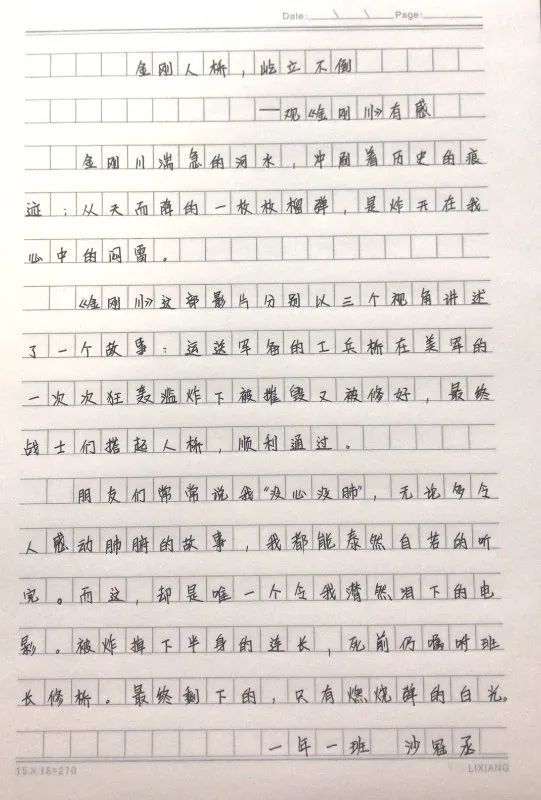 Date: \ \ Page:
金刚人桥，屹立不倒
——观《金刚川》有感
金刚川湍急的河水，冲刷着历史的痕
迹；从天而降的一枚枚榴弹，是炸开在我
心中的闷雷。
《金刚川》这部影片分别以三个视角讲述
了一个故事：运送军备的工兵桥在美军的
一次次狂轰滥炸下被摧毁又被修好，最终
战士们搭起人桥，顺利通过。
朋友们常常说我“没心没肺”，无论多令
人感动肺腑的故事，我都能泰然自若的听
完。而这，却是唯一个令我潸然泪下的电
影。被炸掉下半身的连长，死前仍嘱咐班
长修桥。最终剩下的，只有燃烧弹的白光。
一年一班 沙冠丞
15×18=270 LIXIANG